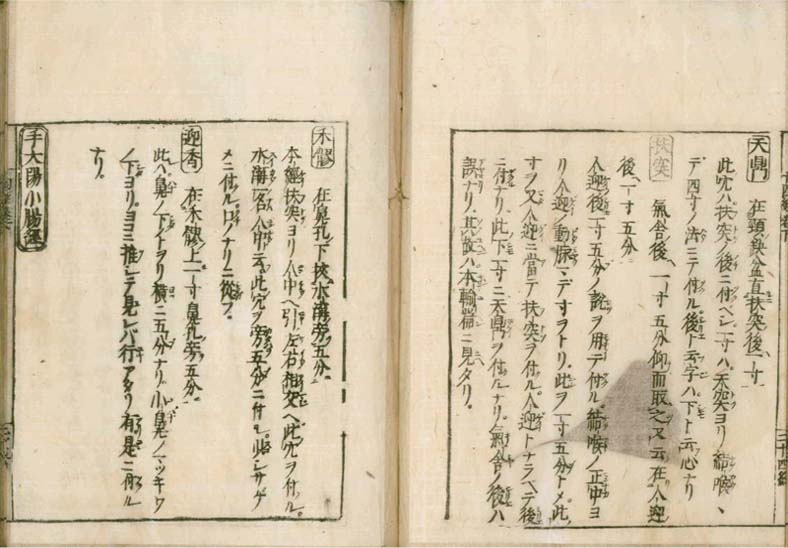 天鼎
在頸缺盆直扶突後一寸
此穴ハ扶突ノ後ニ付ベシ一寸ハ天突ヨリ結喉ヽ
デ四寸ノ法ニテ付ル後ト云字ハ下ト云心ナリ
扶突
氣舎後一寸五分仰而取之又云在人迎
後一寸五分
人迎後一寸五分ノ説ヲ用テ付ル結喉ノ正中ヨ
リ人迎ノ動脉マデ寸ヲトリ此ヲ一寸五分トメ此
寸ヲ又人迎ニ當テ扶突ヲ付ル人迎トナラベテ後
ニ付ナリ此下一寸ニ天鼎ヲ付ルナリ氣舎ノ後ハ
誤ナリ其説ハ本輸篇ニ見タリ
禾髎
在鼻孔下挾水溝旁五分
本經扶突ヨリ人中ヘ引左右相交ヘ此穴ヲ付ル
水溝一名人中云此穴ヲ旁五分ニ付ル
メニ付ル口ノナリニ從フ
迎香
在禾髎上一寸鼻孔旁五分
此ハ鼻ノ下イトヲリ横ニ五分ナリ小鼻ノマッキワ
ノ下ヨリヨコニ推シテ見レバ行アタリ有是ニ付ル
ナリ
手太陽小腸經